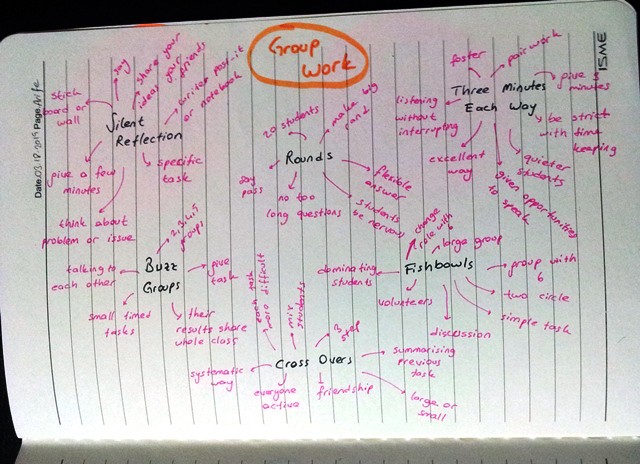 Group
Work
ISME
Date:
Page:
Silent
Reflection
say
share your
ideas your
friends
stick
board or
wall
write post-it
or notebook
give a few
minutes
specific
task
think about
problem or issue
Rounds
20 students
make big
say
pass
flexible
answer
no too
long questions
students
be nervous
Three Minutes
Each Way
foster
pair work
give 3
minutes
listening
without
interrupting
be strict
with time
keeping
excellent
way
quieter
students
given opportunities
to speak
Buzz
Groups
2,3,4,5
groups
talking to
each other
give
task
small timed
tasks
their
results share
whole class
Fishbowls
change
role with
large group
dominating
students
group with
6
volunteers
two circle
simple task
discussion
Cross Overs
each task
more difficult
mix
students
summarising
previous
task
systematic
way
everyone
active
friendship
large or
small